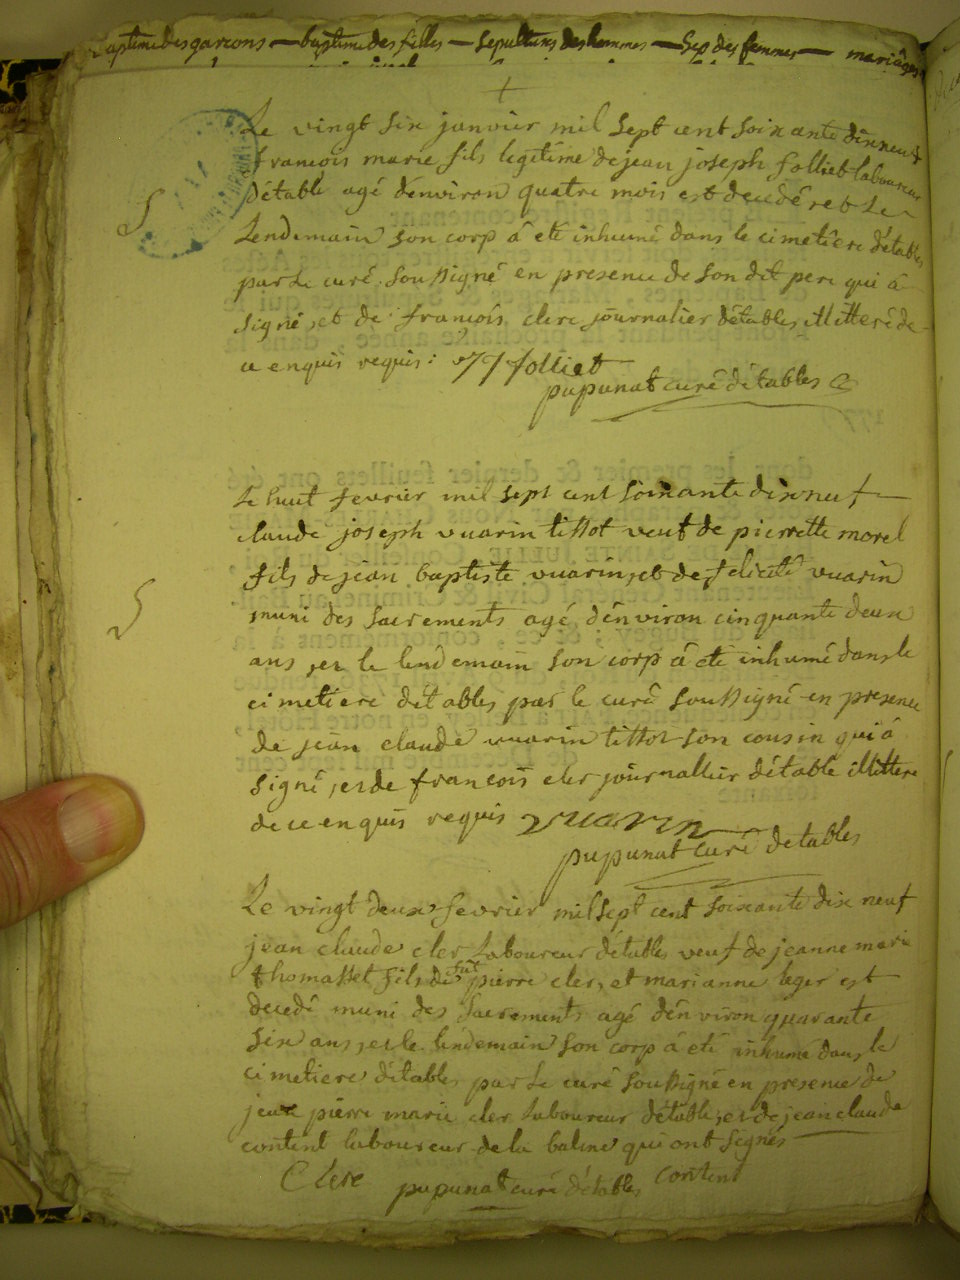 baptime des garcons — baptime des filles — sepultures des hommes — Sep des femmes — mariages
Le vingt six janvier mil sept cent soixante dixneuf
francois marie fils legitime de jean joseph folliet laboureur
détable agé dénviron quatre mois est decedé et Le
Lendemain son corp á eté inhumé dans le cimetiere détables
par Le curé soussigné en presence de son dit pere qui á
signé, et de francois clerc journalier détables illitteré de
ce enquis requis: JJ folliet
pupunat curé détables
Le huit fevrier mil sept cent soixante dixneuf
claude joseph vuarin tissot veuf de pierrette morel
fils de jean baptiste vuarin, et de felicité vuarin
muni des sacrements agé dénviron cinquante deux
ans, et le lendemain son corp á eté inhumé dans le
cimetiere détables par le curé soussigné en presence
de jean claude vuarin tissot son cousin qui á
signé, et de francois cler journallier détable illittere
de ce enquis requis vuarin
pupunat curé detables
Le vingt deux fevrier mil sept cent soixante dix neuf
jean claude cler Laboureur détables veuf de jeanne marie
thomasset fils de fut pierre cler, et marianne leger est
decedé muni des sacrements agé dénviron quarante
six ans, et le lendemain son corp á eté inhumé dans le
cimetiere détables par Le curé soussigné en presence de
jean pierre marie cler laboureur détable, et de jean claude
content laboureur de la balme qui ont signés
Clerc pupunat curé détables content